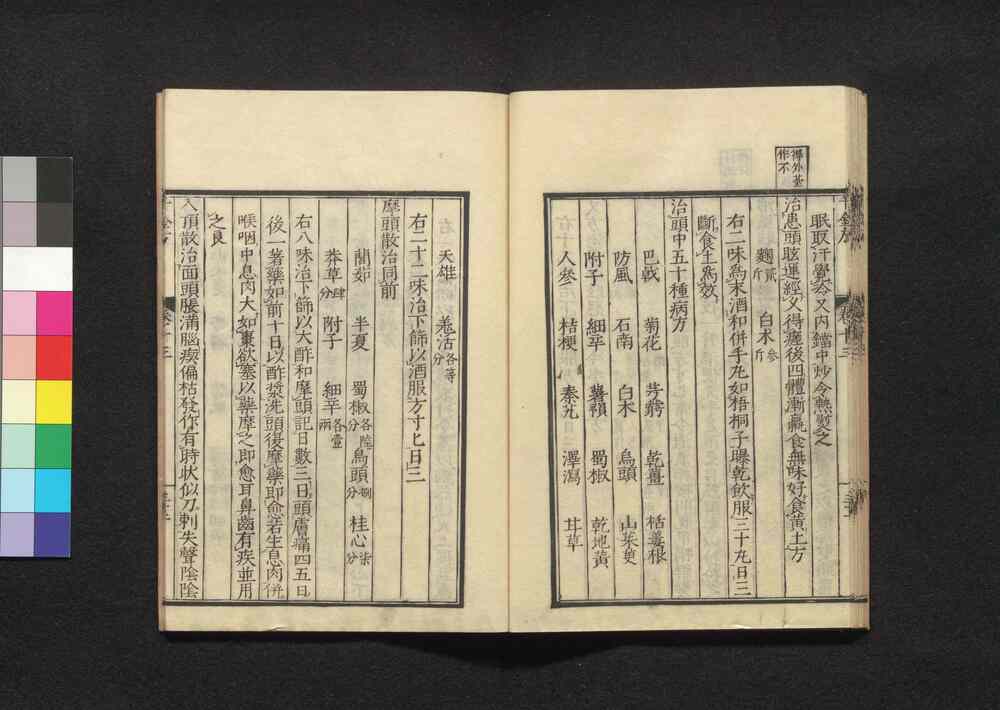 得外臺
作不
眠取汗覺㳒又内鐺中炒令熱熨之
治患頭眩運經久得瘥後四體漸羸食無味好食黄土方
麴貳斤 白术參斤
右二味爲末酒和併手丸如梧桐子曝乾飲服三十九日三
斷食土爲效
治頭中五十種病方
巴戟 菊花 芎藭 乾薑 栝蔞根
防風 石南 白术 烏頭 山茱萸
附子 細辛 薯蕷 蜀椒 乾地黄
人參 桔梗 秦艽 澤瀉 甘草
天雄 羗活各等分
右二十二味治下篩以酒服方寸匕日三
摩頭散治同前
䕡茹 半夏 蜀椒各陸分 烏頭捌分 桂心柒分
莽草肆分 附子 細辛各壹兩
右八味治下篩以大酢和摩頭記日數三日頭膚痛四五日
後一著藥如前十日以酢漿洗頭復摩藥即愈若生息肉併
喉咽中息肉大如棗欲塞以藥摩之即愈耳鼻齒有疾並用
之良
入頂散治面頭脹滿腦瘈偏枯發作有時狀似刀刺失聲陰陰